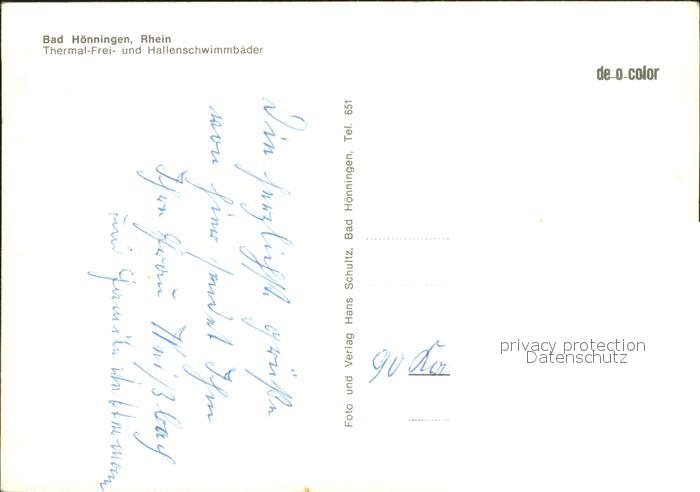 Bad Hönningen, Rhein
Thermal-Frei- und Hallenschwimmbäder
de-o-color
Die herzlichste grüße
von hier sendet Ihn
Ihre Frau
und Familie
Foto und Verlag Hans Schultz, Bad Hönningen, Tel. 651
90
privacy protection
Datenschutz